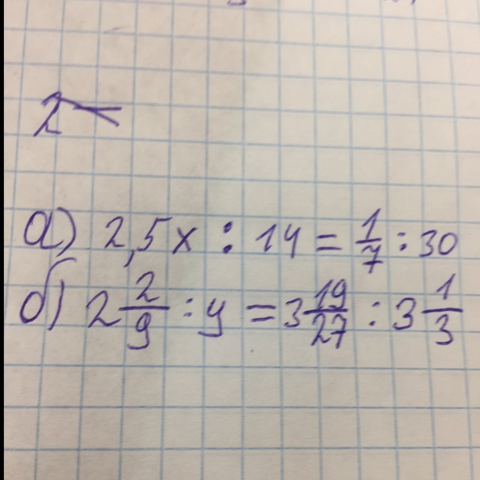 2
а) 2,5x : 14 = 1/7 : 30
б) 2 2/9 : y = 3 19/27 : 3 1/3